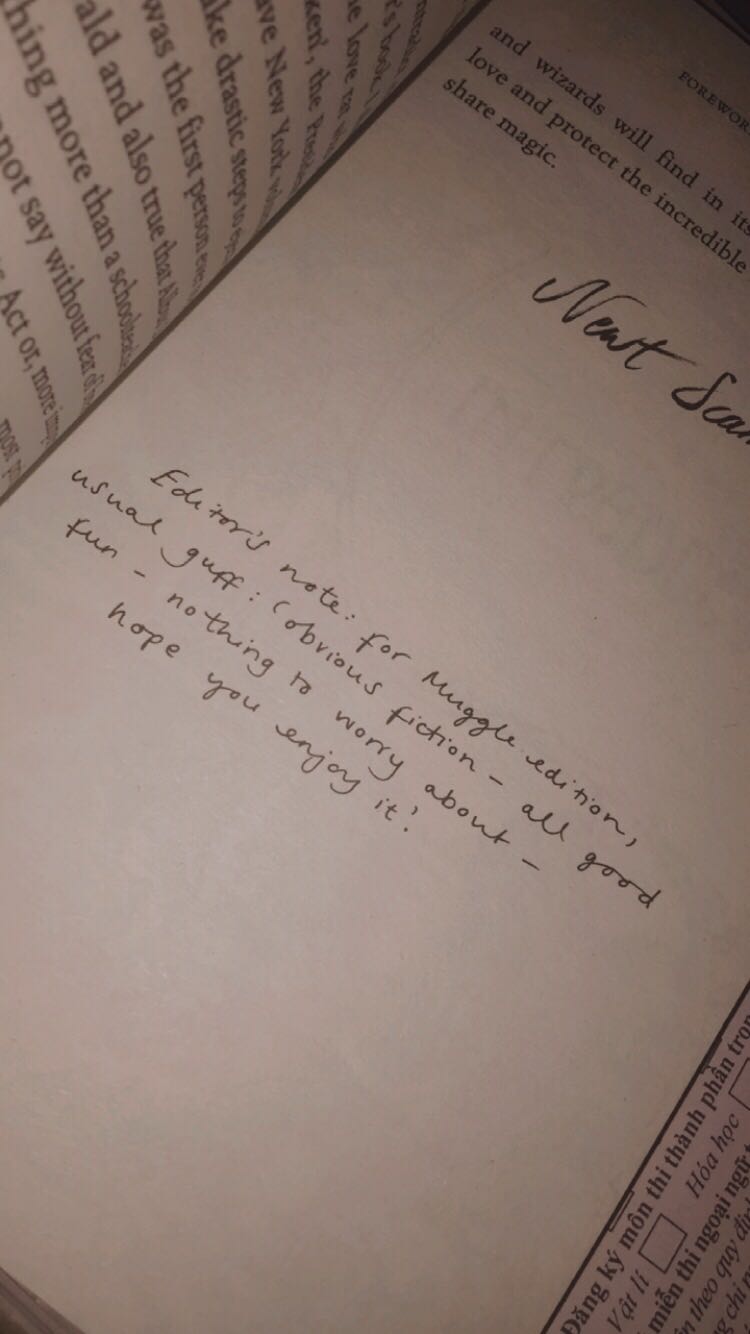 ntratio
r's book, I
e love rat wh
ken', the Presid
ave New York witho
ake drastic steps to
was the first person ever
ald and also true that
hing more than a
not say without fear of
Act or, more imp
most
FOREWOR
and wizards will find in its
love and protect the incredible
share magic.
Newt Scam
Editor's note: for Muggle edition,
usual guff: (obvious fiction - all good
fun - nothing to worry about -
hope you enjoy it!
Đăng ký môn thi thành phần tron
Vật lí
Hóa học
miễn thi ngoại ngữ t
theo quy địn
chỉ